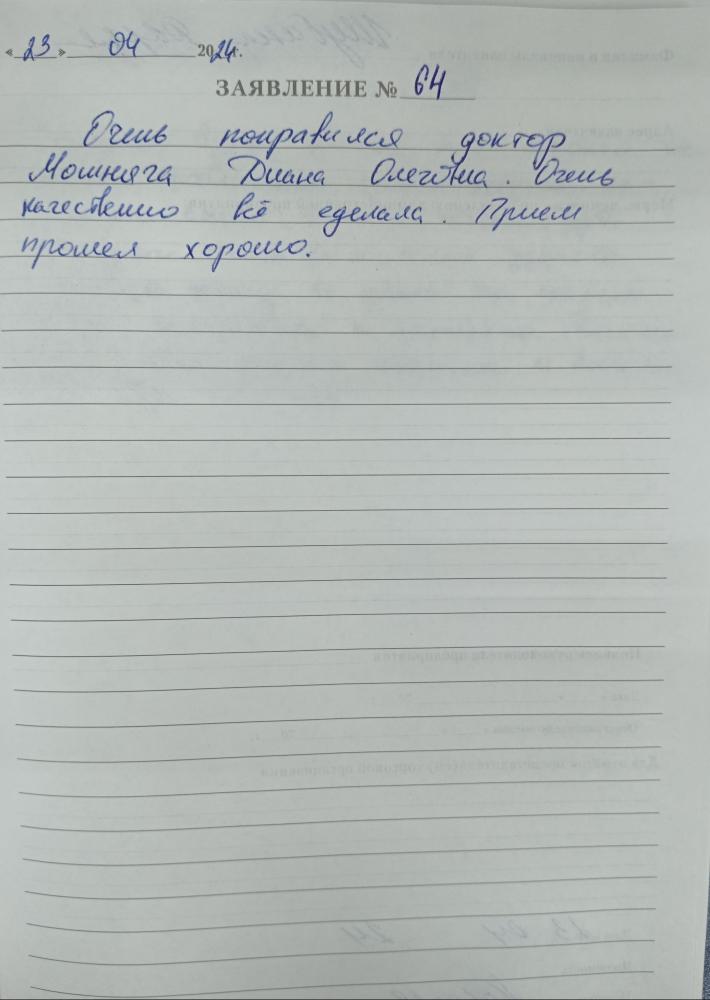 «23» 04 2024г.
ЗАЯВЛЕНИЕ № 64
Очень понравился доктор
Мошняга Диана Олеговна. Очень
качественно всё сделала. Прием
прошел хорошо.